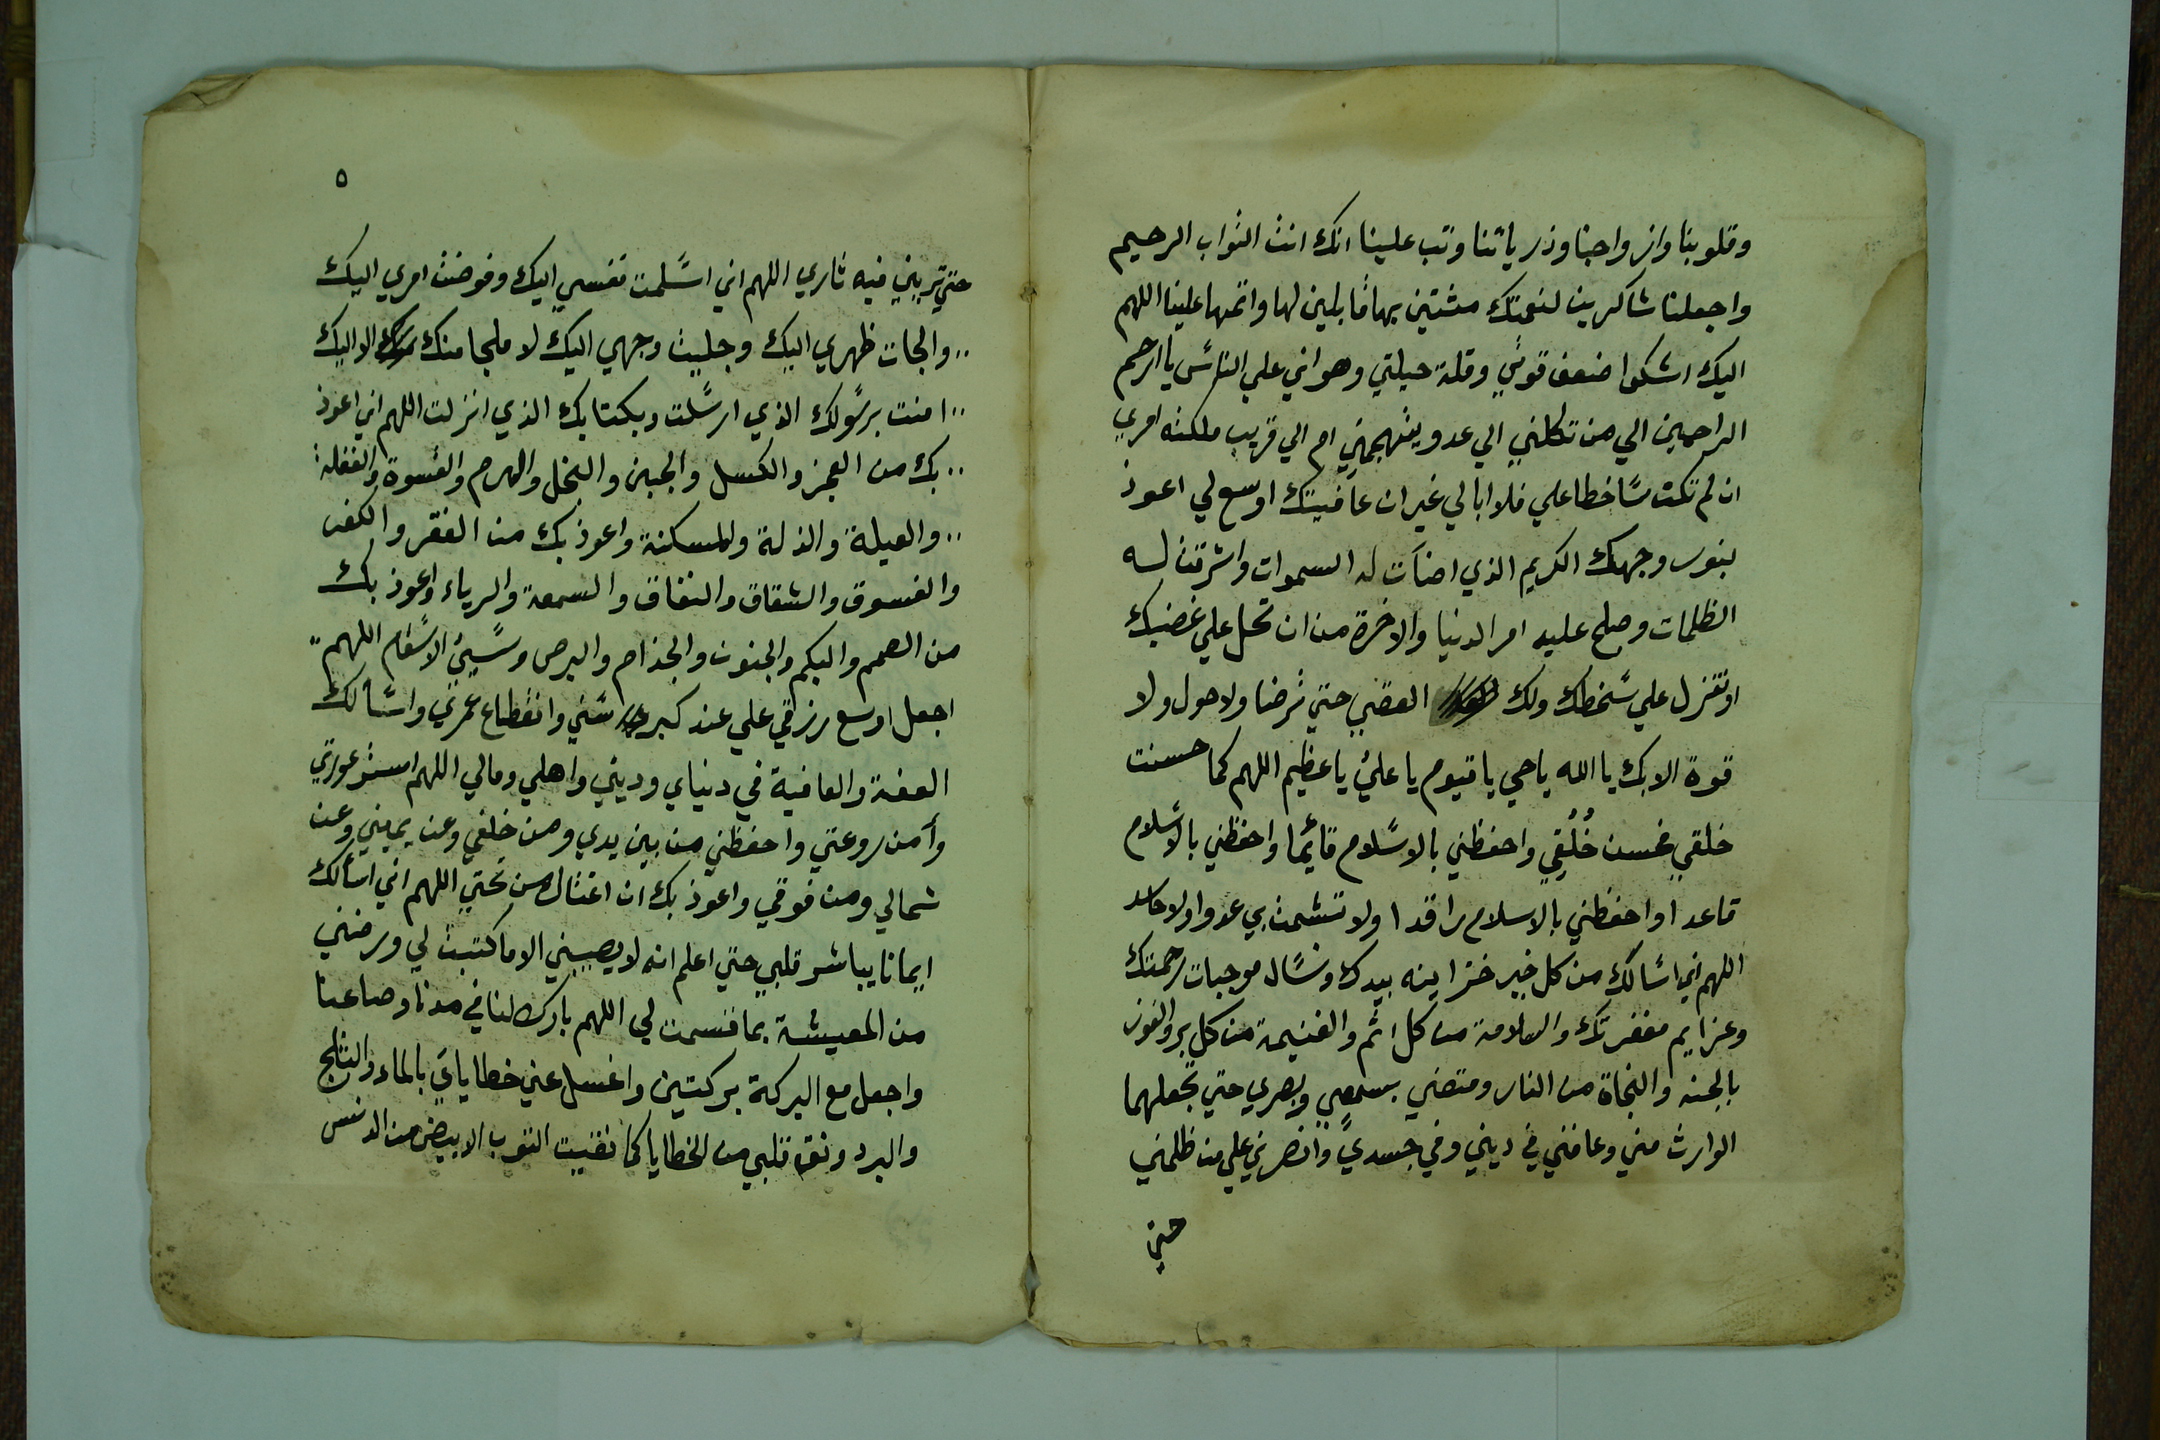 وقلوبنا وازواجنا وذرياتنا وتب علينا انك انت التواب الرحيم
واجعلنا شاكرين لنعمتك مثنين بها قابلين لها واتمها علينا اللهم
اليك اشكوا ضعف قوتي وقلة حيلتي وهواني علي الناس يا ارحم
الراحمين الي من تكلني الي عدو يتهجمني ام الي قريب ملكته امري
ان لم تكن ساخطا علي فلا ابالي غير ان عافيتك اوسع لي اعوذ
بنور وجهك الكريم الذي اضآت له السموات واشرقت له
الظلمات وصلح عليه امر الدنيا والاخرة من ان تحل علي غضبك
او تنزل علي سخطك ولك العتبي حتي ترضا ولا حول ولا
قوة الا بك يا الله يا حي يا قيوم يا علي يا عظيم اللهم كما حسنت
خلقي فحسن خُلُقي واحفظني بالاسلام قائما واحفظني بالاسلام
قاعدا واحفظني بالاسلام راقدا ولا تشمت بي عدوا ولا حاسد
اللهم اني اسالك من كل خير خزاينه بيدك ونسال موجبات رحمتك
وعزايم مغفرتك والسلامة من كل اثم والغنيمة من كل بر والفوز
بالجنه والنجاة من النار ومتعني بسمعي وبصري حتي تجعلهما
الوارث مني وعافني في ديني وفي جسدي وانصرني علي من ظلمني
حتي
٥
حتي تريني فيه ثاري اللهم اني اسلمت نفسي اليك وفوضت امري اليك
والجات ظهري اليك وجليت وجهي اليك لا ملجا منك الا اليك
امنت برسولك الذي ارسلت وبكتابك الذي انزلت اللهم اني اعوذ
بك من العجز والكسل والجبن والبخل والهرم والقسوة والغفلة
والعيلة والذلة والمسكنة واعوذ بك من الفقر والكفر
والفسوق والشقاق والنفاق والسمعة والرياء واعوذ بك
من الصمم والبكم والجنون والجذام والبرص وسيئ الاسقام اللهم
اجعل اوسع رزقي علي عند كبر سني وانقطاع عمري واسألك
العفة والعافية في دنياي وديني واهلي ومالي اللهم استر عورتي
وآمن روعتي واحفظني من بين يدي ومن خلفي وعن يميني وعن
شمالي ومن فوقي واعوذ بك ان اغتال من تحتي اللهم اني اسألك
ايمانا يباشر قلبي حتي اعلم انه لا يصيبني الا ما كتبت لي ورضني
من المعيشة بما قسمت لي اللهم بارك لنا في مدنا وصاعنا
واجعل مع البركة بركتين واغسل عني خطاياي بالماء والثلج
والبرد ونق قلبي من الخطايا كما نقيت الثوب الابيض من الدنس